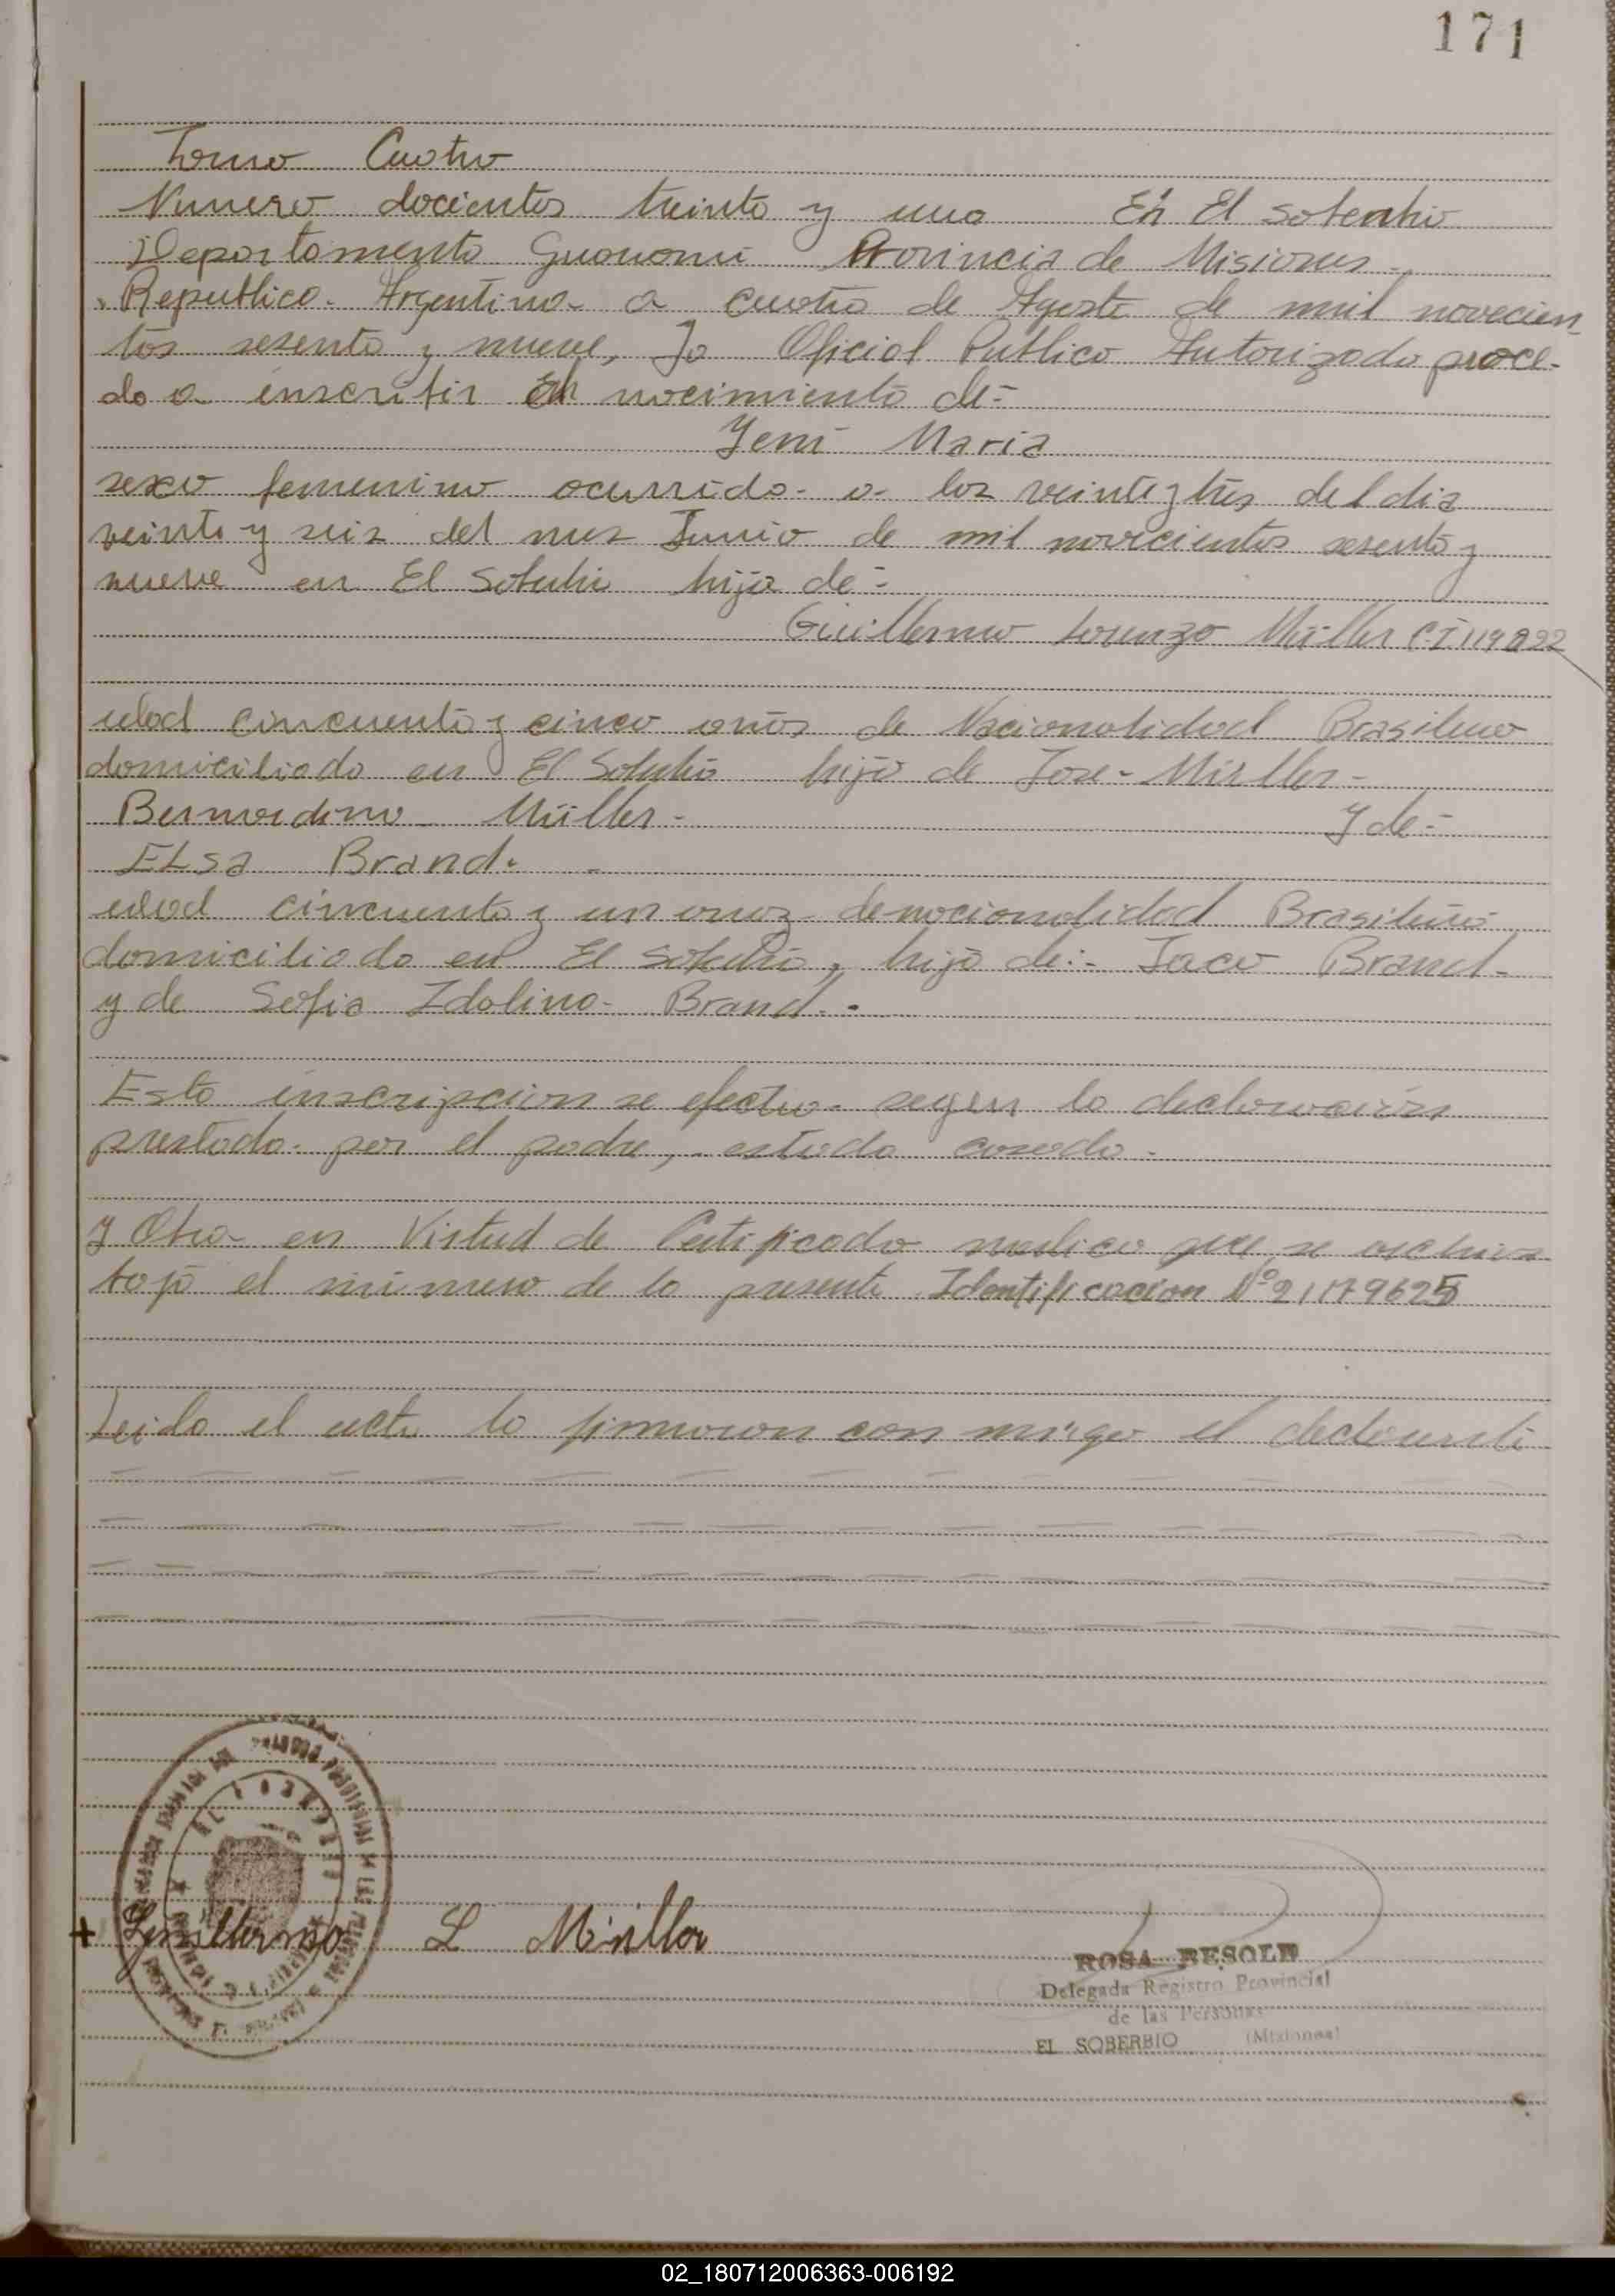 171
Tomo Cuatro
Numero docientos treinta y uno En El Soberbio
Departamento Guarani Provincia de Misiones-
Republica Argentina a cuatro de Agosto de mil novecien
tos sesenta y nueve, Yo Oficial Publico Autorizado proce-
do a inscribir el nacimiento de:-
Yeni Maria
sexo femenino ocurrido a las veinte y tres del dia
veinte y seis del mes Junio de mil novecientos sesenta y
nueve en El Soberbio hija de:-
Guillermo Lorenzo Müller C.I 119022
edad cincuenta y cinco años de Nacionalidad Brasilero
domiciliado en El Soberbio hijo de Jose Müller-
Bernardina Müller- Y de:-
ELsa Brand.
edad cincuenta y un años de nacionalidad Brasileña
domiciliada en El Soberbio, hija de:- Jaco Brand-
y de Sofia Idolina Brand.-
Esta inscripcion se efectua segun la declaracion
prestada por el padre, estado casado-
Y Obra en Virtud de Certificado medico que se archiva
bajo el numero de la presente Identificacion Nº 21179625
Leida el acta la firmaron con migo el declarante
+ Guillermo L Müller
ROSA BESOLD
Delegada Registro Provincial
de las Personas
EL SOBERBIO (Misiones)
02_180712006363-006192